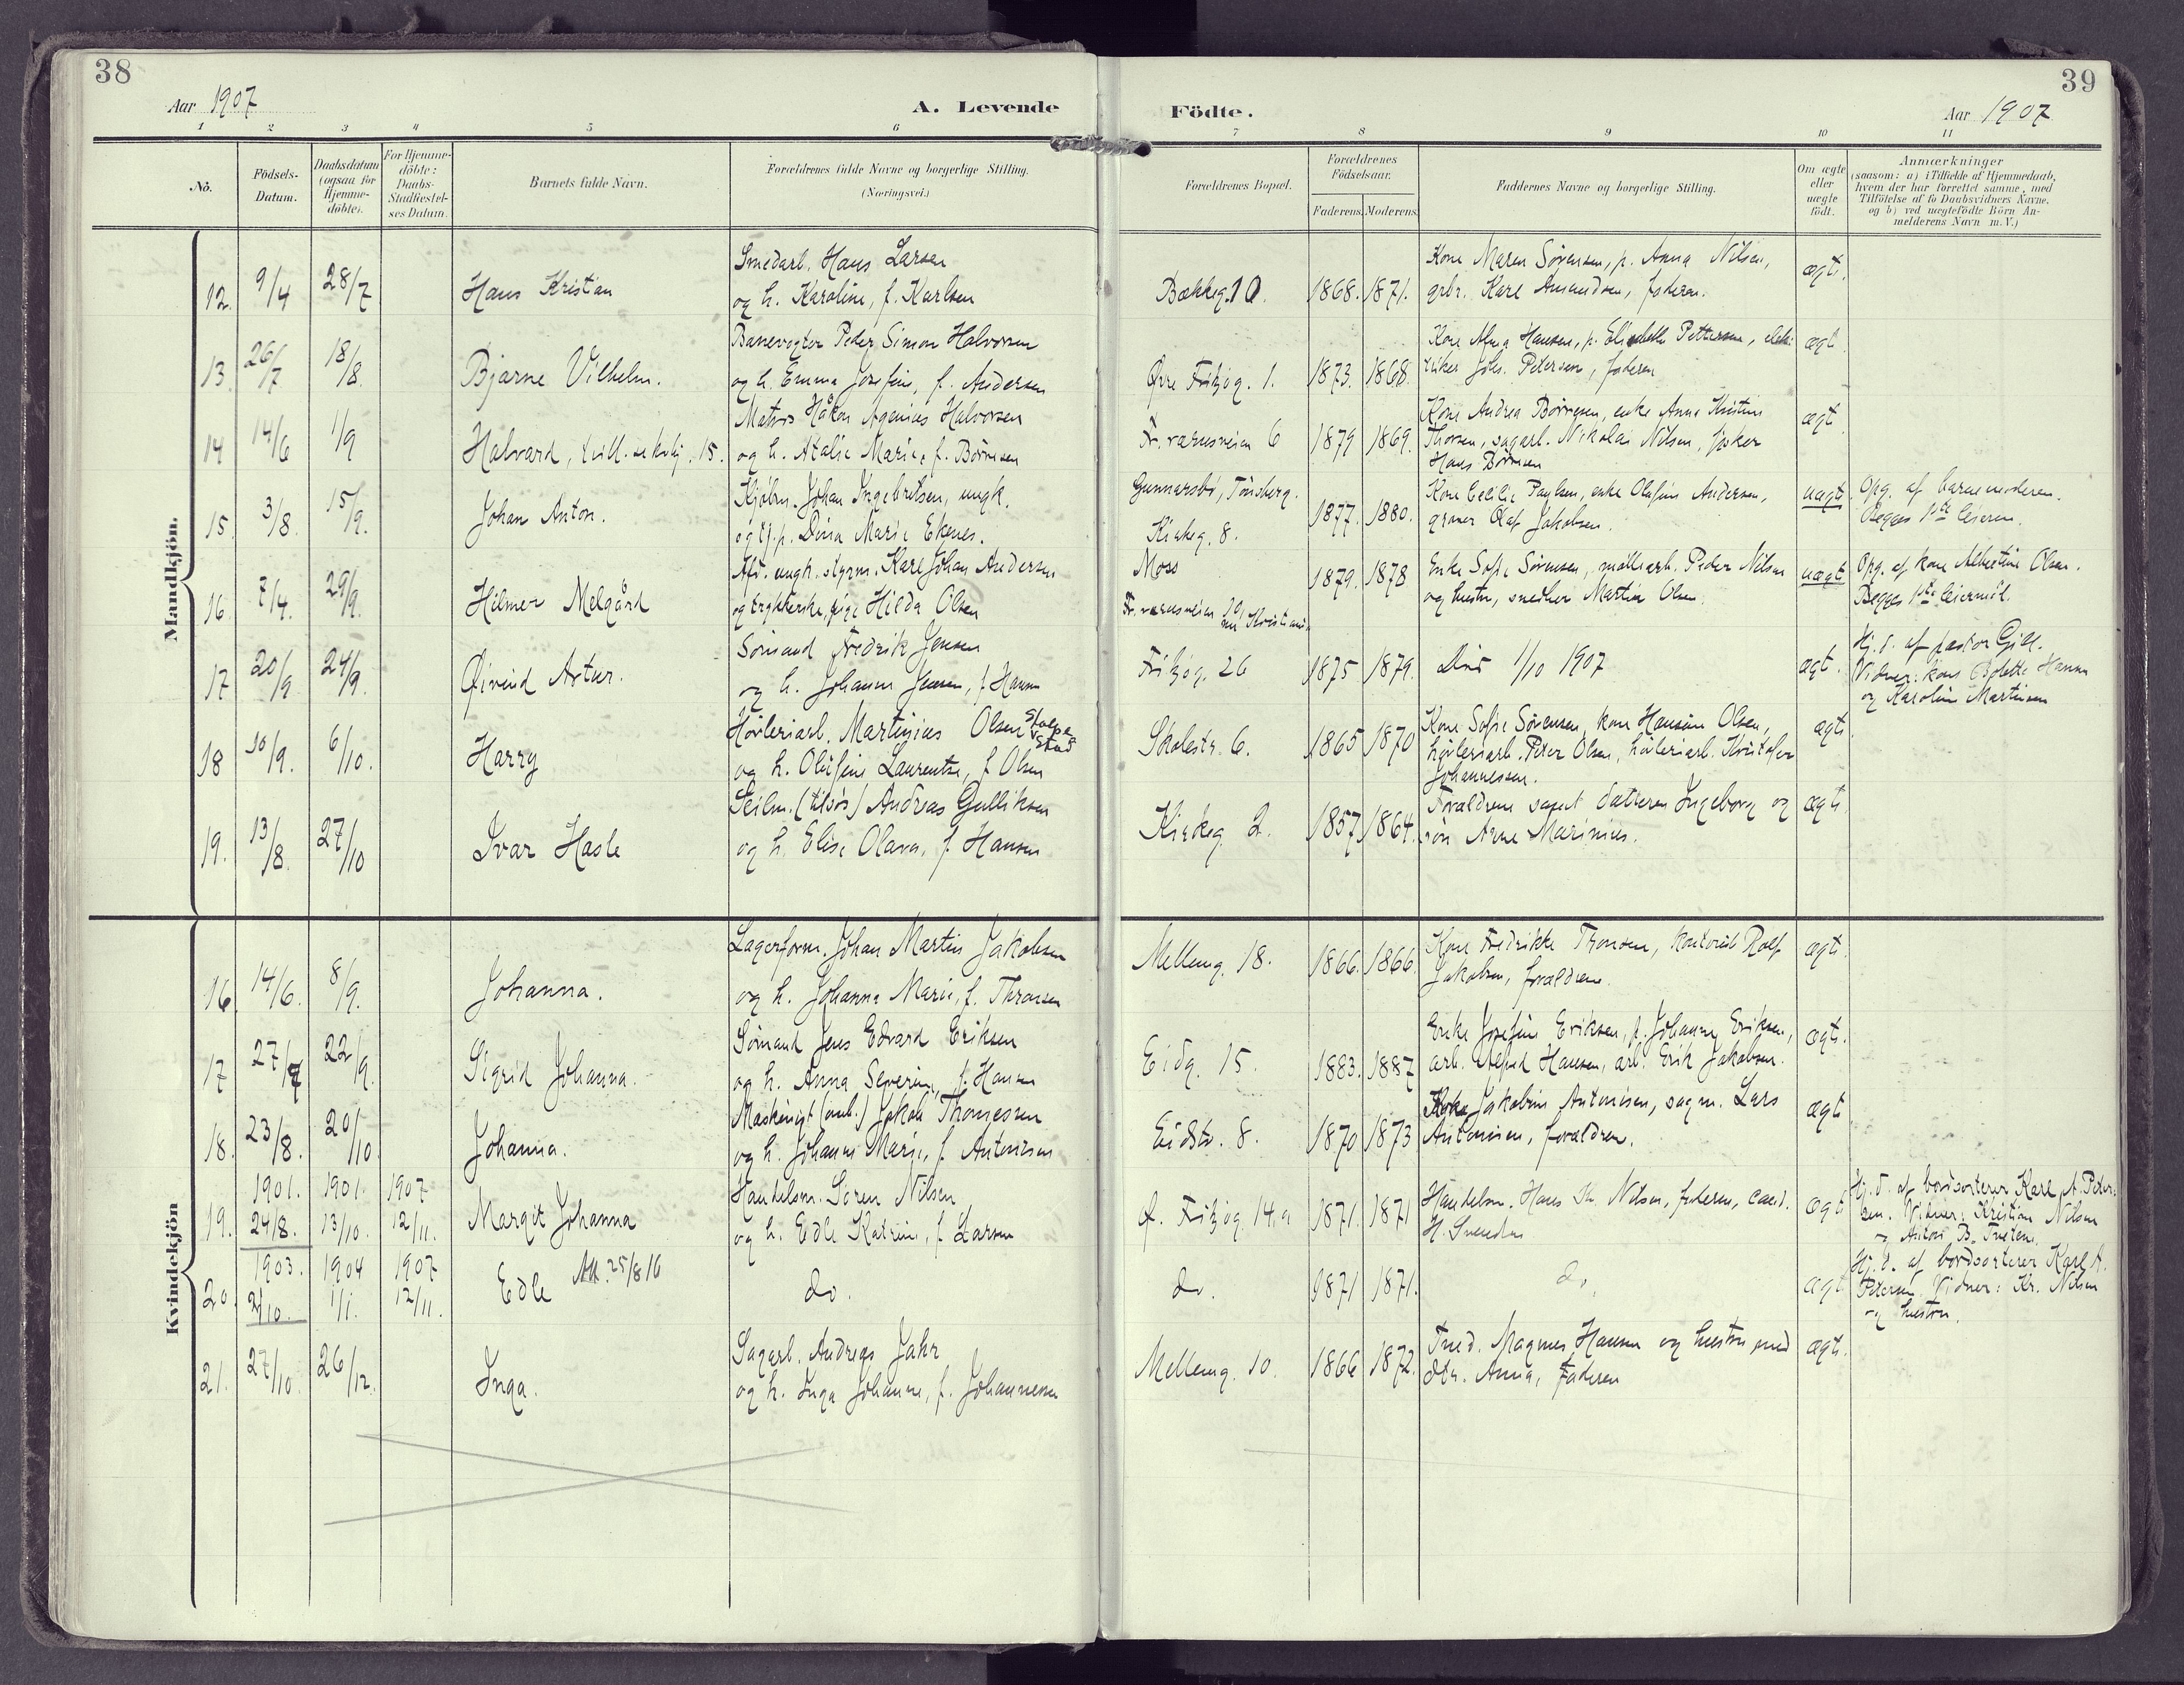 38
Aar 1907
A. Levende
Födte.
Aar 1907
39
1 2 3 4 5 6 7 8 9 10 11
No.
Födsels-
Datum.
Daabsdatum
(ogsaa for
Hjemme-
döbte).
For Hjemme-
döbte:
Daabs-
Stadfæstel-
ses Datum.
Barnets fulde Navn.
Forældrenes fulde Navne og borgerlige Stilling.
(Næringsvei.)
Forældrenes Bopæl.
Forældrenes
Födselsaar.
Faderens. Moderens.
Faddernes Navne og borgerlige Stilling.
Om ægte
eller
uægte
födt.
Anmærkninger
(saasom: a) i Tilfælde af Hjemmedaab,
hvem der har forrettet samme, med
Tilföielse af to Daabsvidners Navne,
og b) ved uægtefödte Börn An-
melderens Navn m. V.)
Mandkjön.
12. 9/4 28/7 Hans Kristian
Smedarb. Hans Larsen
og h. Karoline, f. Karlsen
Bækkeg. 10. 1868. 1871.
Kone Maren Sørensen, p. Anna Nilsen,
grbr. Karl Amundsen, faderen.
ægt.
13. 26/7 18/8. Bjarne Vilhelm.
Banevogter Peder Simon Halvorsen
og h. Emma Josefine, f. Andersen
Øvre Fritzøg. 1. 1873. 1868.
Kone Alma Hansen, p. Elisabeth Pettersen, elek-
triker Johs. Petersen, faderen
ægt.
14 14/6 1/9 Halvard, tvill. se kvkj. 15.
Matros Håkon Agenius Halvorsen
og h. Atalie Marie, f. Børresen
Fr.værnsveien 6 1879 1869.
Kone Andrea Børresen, enke Anna Kristine
Thorsen, sagarb. Nikolai Nilsen, fisker
Hans Børresen
ægt.
15. 3/8. 15/9. Johan Anton.
Kjøbm. Johan Ingebretsen, ungk.
og tj.p. Dina Marie Ekenes.
Gunnarsbø, Tønsberg.
Kirkeg. 8. 1877. 1880.
Kone Cecilie Paulsen, enke Olefine Andersen,
graver Olaf Jakobsen.
uægte
Opg. af barnemoderen.
Begges 1ste leierm.
16. 7/4. 29/9. Hilmer Melgård
Afd. ungk. styrm. Karl Johan Andersen
og trykkerske, pige Hilda Olsen
Moss
Fr.værnsveien 29, nu Kristiania
1879. 1878
Enke Sofie Sørensen, møllearb. Peder Nilsen
og hustru, snedker Martin Olsen.
uægt.
Opg. af kone Albertine Olsen.
Begges 1ste leiermål.
17 20/9 24/9. Øivind Artur.
Sømand Fredrik Jensen
og h. Johanne Jensen, f. Hansen
Fritzøg. 26 1875 1879.
Død 1/10 1907
ægt.
Hj.d. af pastor Gjill.
Vidner: kone Bolette Hansen
og Karoline Martinsen
18 10/9. 6/10. Harry
Høvleriarb. Martinius Olsen Stulpestad
og h. Olefine Laurentze, f. Olsen
Skolestr. 6. 1865 1870
Kone Sofie Sørensen, kone Hansine Olsen,
høvleriarb. Peter Olsen, høvleriarb. Kristofer
Johannessen.
ægt.
19. 13/8. 27/10 Ivar Hasle
Seilm. (tilsjøs) Andreas Gulliksen
og h. Elise Olava, f. Hansen
Kirkeg. 2. 1857. 1864.
Forældrene samt datteren Ingeborg og
søn Arne Marinius.
ægt.
Kvindekjön
16. 14/6. 8/9. Johanna.
Lagerform. Johan Martin Jakobsen
og h. Johanna Marie, f. Thronsen
Melleng. 18. 1866. 1866.
Kone Fredrikke Thronsen, kontorist Rolf
Jakobsen, forældrene.
ægt.
17 27/7 22/9. Sigrid Johanna.
Sømand Jens Edvard Eriksen
og h. Anna Severine, f. Hansen
Eidg. 15. 1883. 1887
Enke Josefine Eriksen, p. Johanne Eriksen,
arb. Alfred Hansen, arb. Erik Jakobsen.
ægt.
18. 23/8. 20/10. Johanna.
Maskinist (amb.) Jakob Thomessen
og h. Johanne Marie, f. Antonisen
Eidstr. 8. 1870 1873
Jakobine Antonisen, sagm. Lars
Antonisen, forældrene.
ægt
19. 1901. 24/8. 1901. 13/10. 1907 12/11. Margit Johanna
Handelsm. Søren Nilsen
og h. Edle Katrine, f. Larsen
Ø. Fritzøg. 14.a 1871. 1871
Handelsm. Hans Kr. Nilsen, faderen, cand.
H. Svendsen
ægt
Hj.d. af bordsorterer Karl A. Peter-
sen. Vidner: Kristian Nilsen
og Anton B. Tveten.
20. 1903. 2/10. 1904 1/1. 1907 12/11. Edle Att. 25/8 16
do.
do. 1871 1871.
do.
ægt
Hj.d. af bordsorterer Karl A.
Petersen. Vidner: Kr. Nilsen
og hustru.
21. 27/10. 26/12. Inga.
Sagarb. Andreas Jahr
og h. Inga Johanne, f. Johannesen
Melleng. 10. 1866 1872.
Tred. Magnus Hansen og hustru med
dtr. Anna, faderen
ægt.